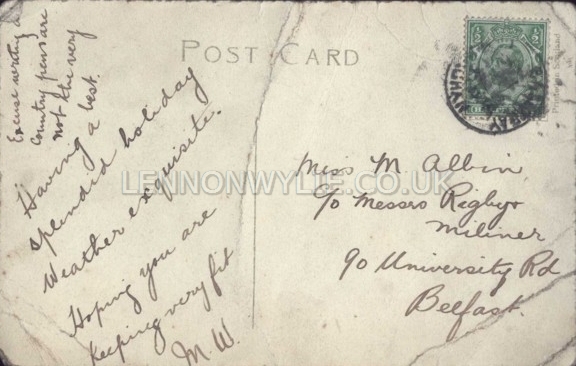 POST CARD
Excuse writing
country pens are
not the very
best.
Having a
splendid holiday
Weather exquisite.
Hoping you are
keeping very fit
M.W.
Miss M Albin,
c/o Messrs Rigby
Miliner
90 University Rd
Belfast.
LENNONWYLIE.CO.UK